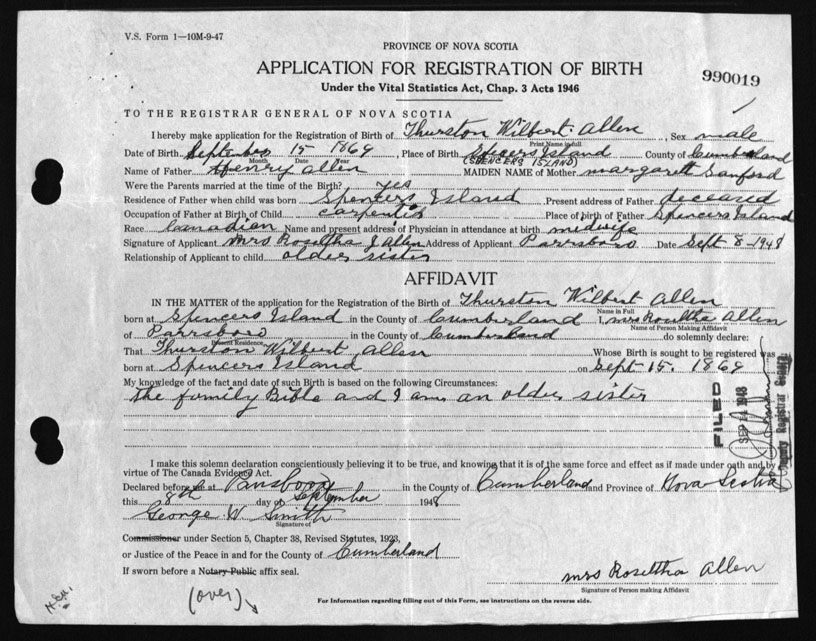 V.S. Form 1—10M-9-47
PROVINCE OF NOVA SCOTIA
APPLICATION FOR REGISTRATION OF BIRTH
990019
Under the Vital Statistics Act, Chap. 3 Acts 1946
TO THE REGISTRAR GENERAL OF NOVA SCOTIA
I hereby make application for the Registration of Birth of Thurston Wilbert Allen, Sex male
Print Name in full
Date of Birth September 15 1869, Place of Birth Spicers Island County of Cumberland
Month Date Year (SPENCERS ISLAND)
Name of Father Henry Allen MAIDEN NAME of Mother Margarett Sanford
Were the Parents married at the time of the Birth? yes
Residence of Father when child was born Spencers Island Present address of Father deceased
Occupation of Father at Birth of Child carpenter Place of birth of Father Spencers Island
Race Canadian Name and present address of Physician in attendance at birth midwife
Signature of Applicant Mrs Roseltha J Allen Address of Applicant Parrsboro Date Sept 8-1948
Relationship of Applicant to child older sister
AFFIDAVIT
IN THE MATTER of the application for the Registration of the Birth of Thurston Wilbert Allen
Name in Full
born at Spencers Island in the County of Cumberland I, Mrs Roseltha Allen
Name of Person Making Affidavit
of Parrsboro in the County of Cumberland do solemnly declare:
Present Residence
That Thurston Wilbert Allen Whose Birth is sought to be registered was
born at Spencers Island on Sept 15. 1869
My knowledge of the fact and date of such Birth is based on the following Circumstances:
the family Bible and I am an older sister
FILED
SEP 14 1948
Deputy Registrar General
I make this solemn declaration conscientiously believing it to be true, and knowing that it is of the same force and effect as if made under oath and by
virtue of The Canada Evidence Act.
Declared before me at Parrsboro in the County of Cumberland and Province of Nova Scotia
this 8th day of September 1948
George W Smith
Signature of
Commissioner under Section 5, Chapter 38, Revised Statutes, 1923,
or Justice of the Peace in and for the County of Cumberland
If sworn before a Notary Public affix seal.
Mrs Roseltha Allen
Signature of Person making Affidavit
(over)
For Information regarding filling out of this Form, see instructions on the reverse side.